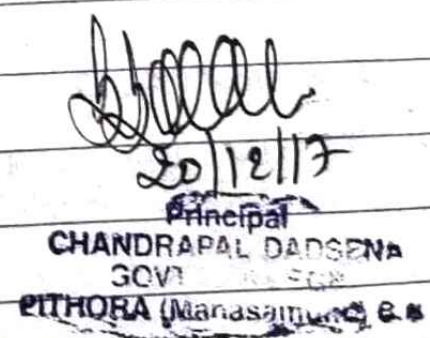 20/12/17
Principal
CHANDRAPAL DADSENA
GOVT
PITHORA (Mahasamund)